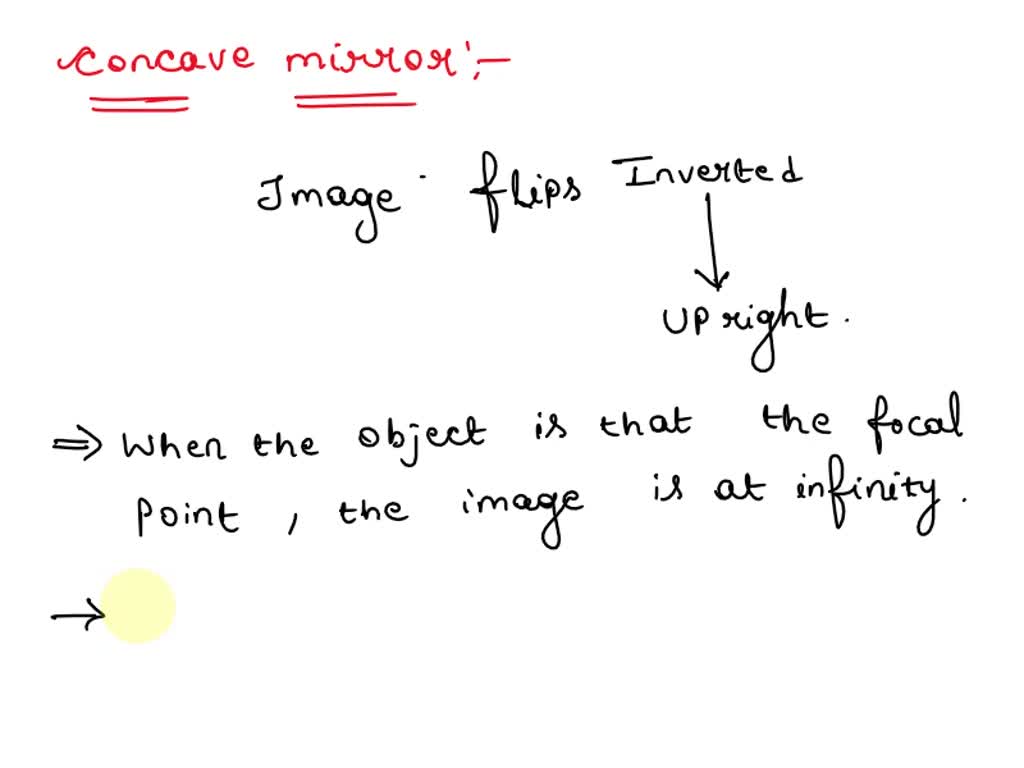 concave mirror:-
Image flips Inverted
upright.
⇒ When the object is that the focal
point, the image is at infinity.
→